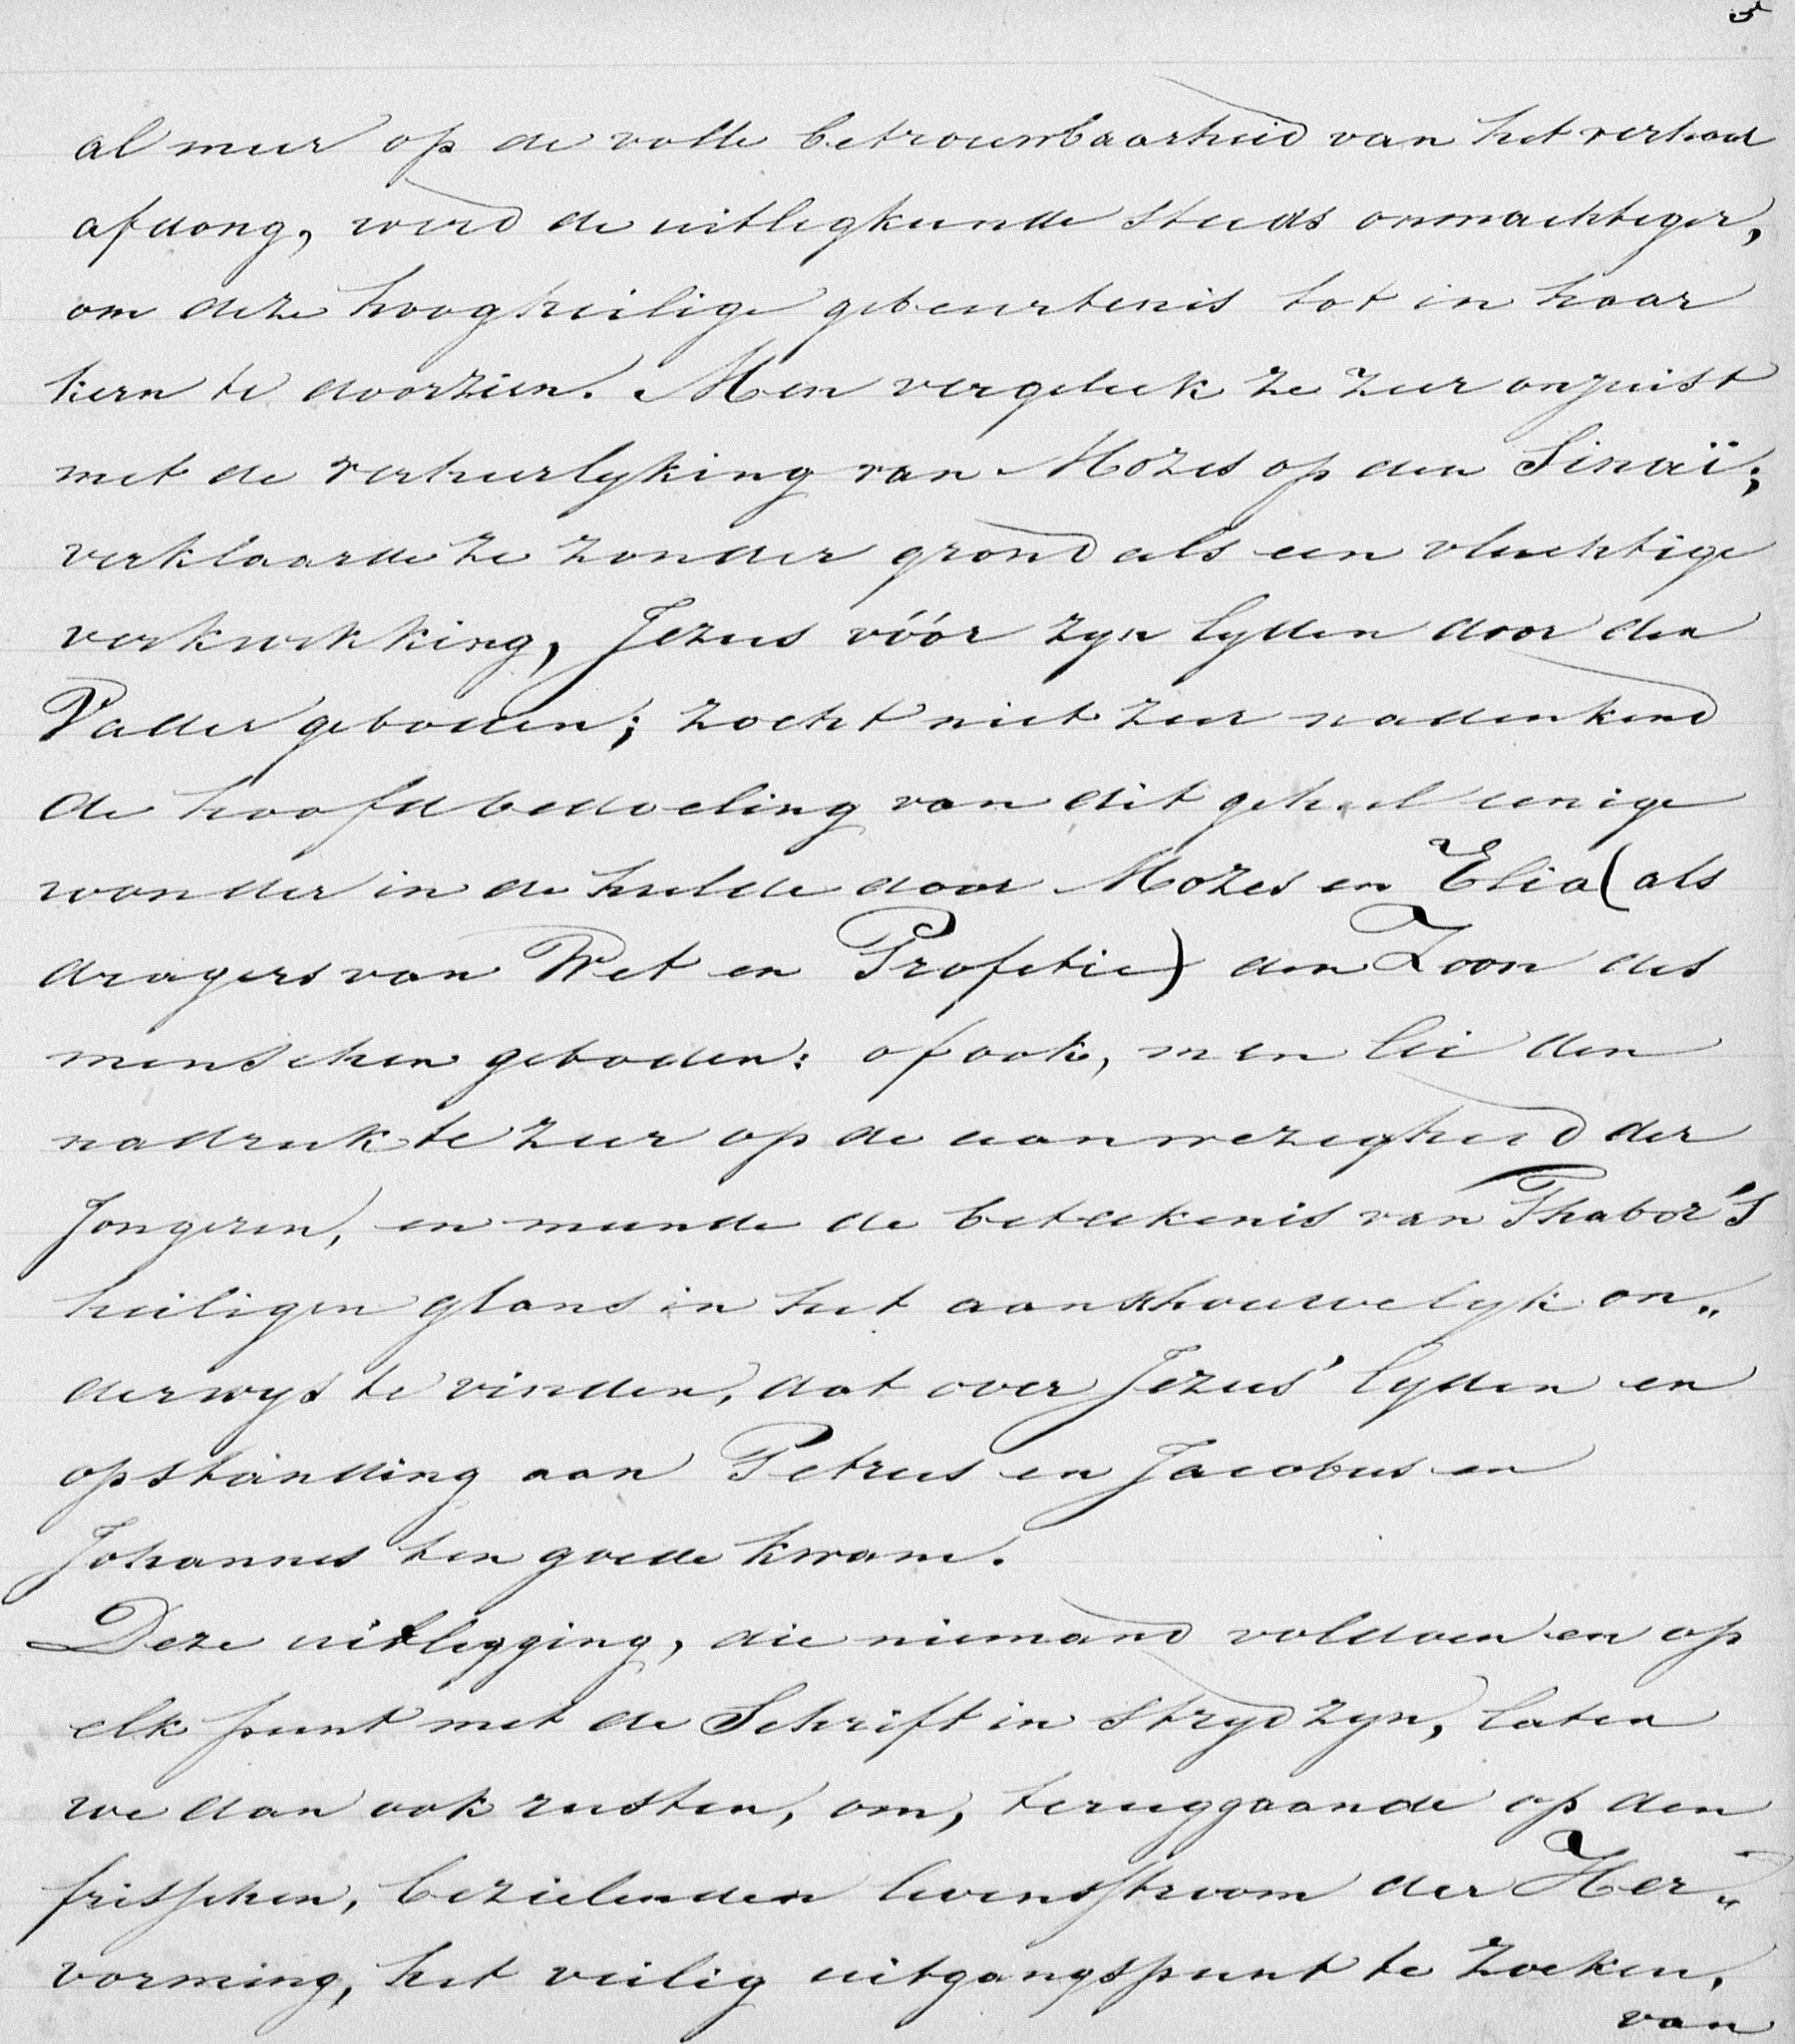 3
al meer op de volle betrouwbaarheid van het verhaal
afdong, werd de uitlegkunde steeds onmachtiger,
om deze hoogheilige gebeurtenis tot in haar
kern te doorzien. Men vergeleek ze zeer onjuist
met de verheerlyking van Mozes op den Sinaï;
verklaarde ze zonder grond als een vluchtige
verkwikking, Jezus vóór zyn lyden door den
Vader geboden; zocht niet zeer nadenkend
de hoofdbedoeling van dit geheel eenige
wonder in de hulde door Mozes en Elia (als
dragers van Wet en Profetie) den Zoon des
menschen geboden: of ook, men lei den
nadruk te zeer op de aanwezigheid der
Jongeren, en meende de beteekenis van Thabor's
heiligen glans in het aanschouwelyk on„
derwys te vinden, dat over Jezus' lyden en
opstanding aan Petrus en Jacobus en
Johannes ten goede kwam.
Deze uitlegging, die niemand voldoen en op
elk punt met de Schrift in stryd zyn, laten
we dan ook rusten, om, teruggaande op den
frisschen, bezielenden levensstroom der Her„
vorming, het veilig uitgangspunt te zoeken,
van